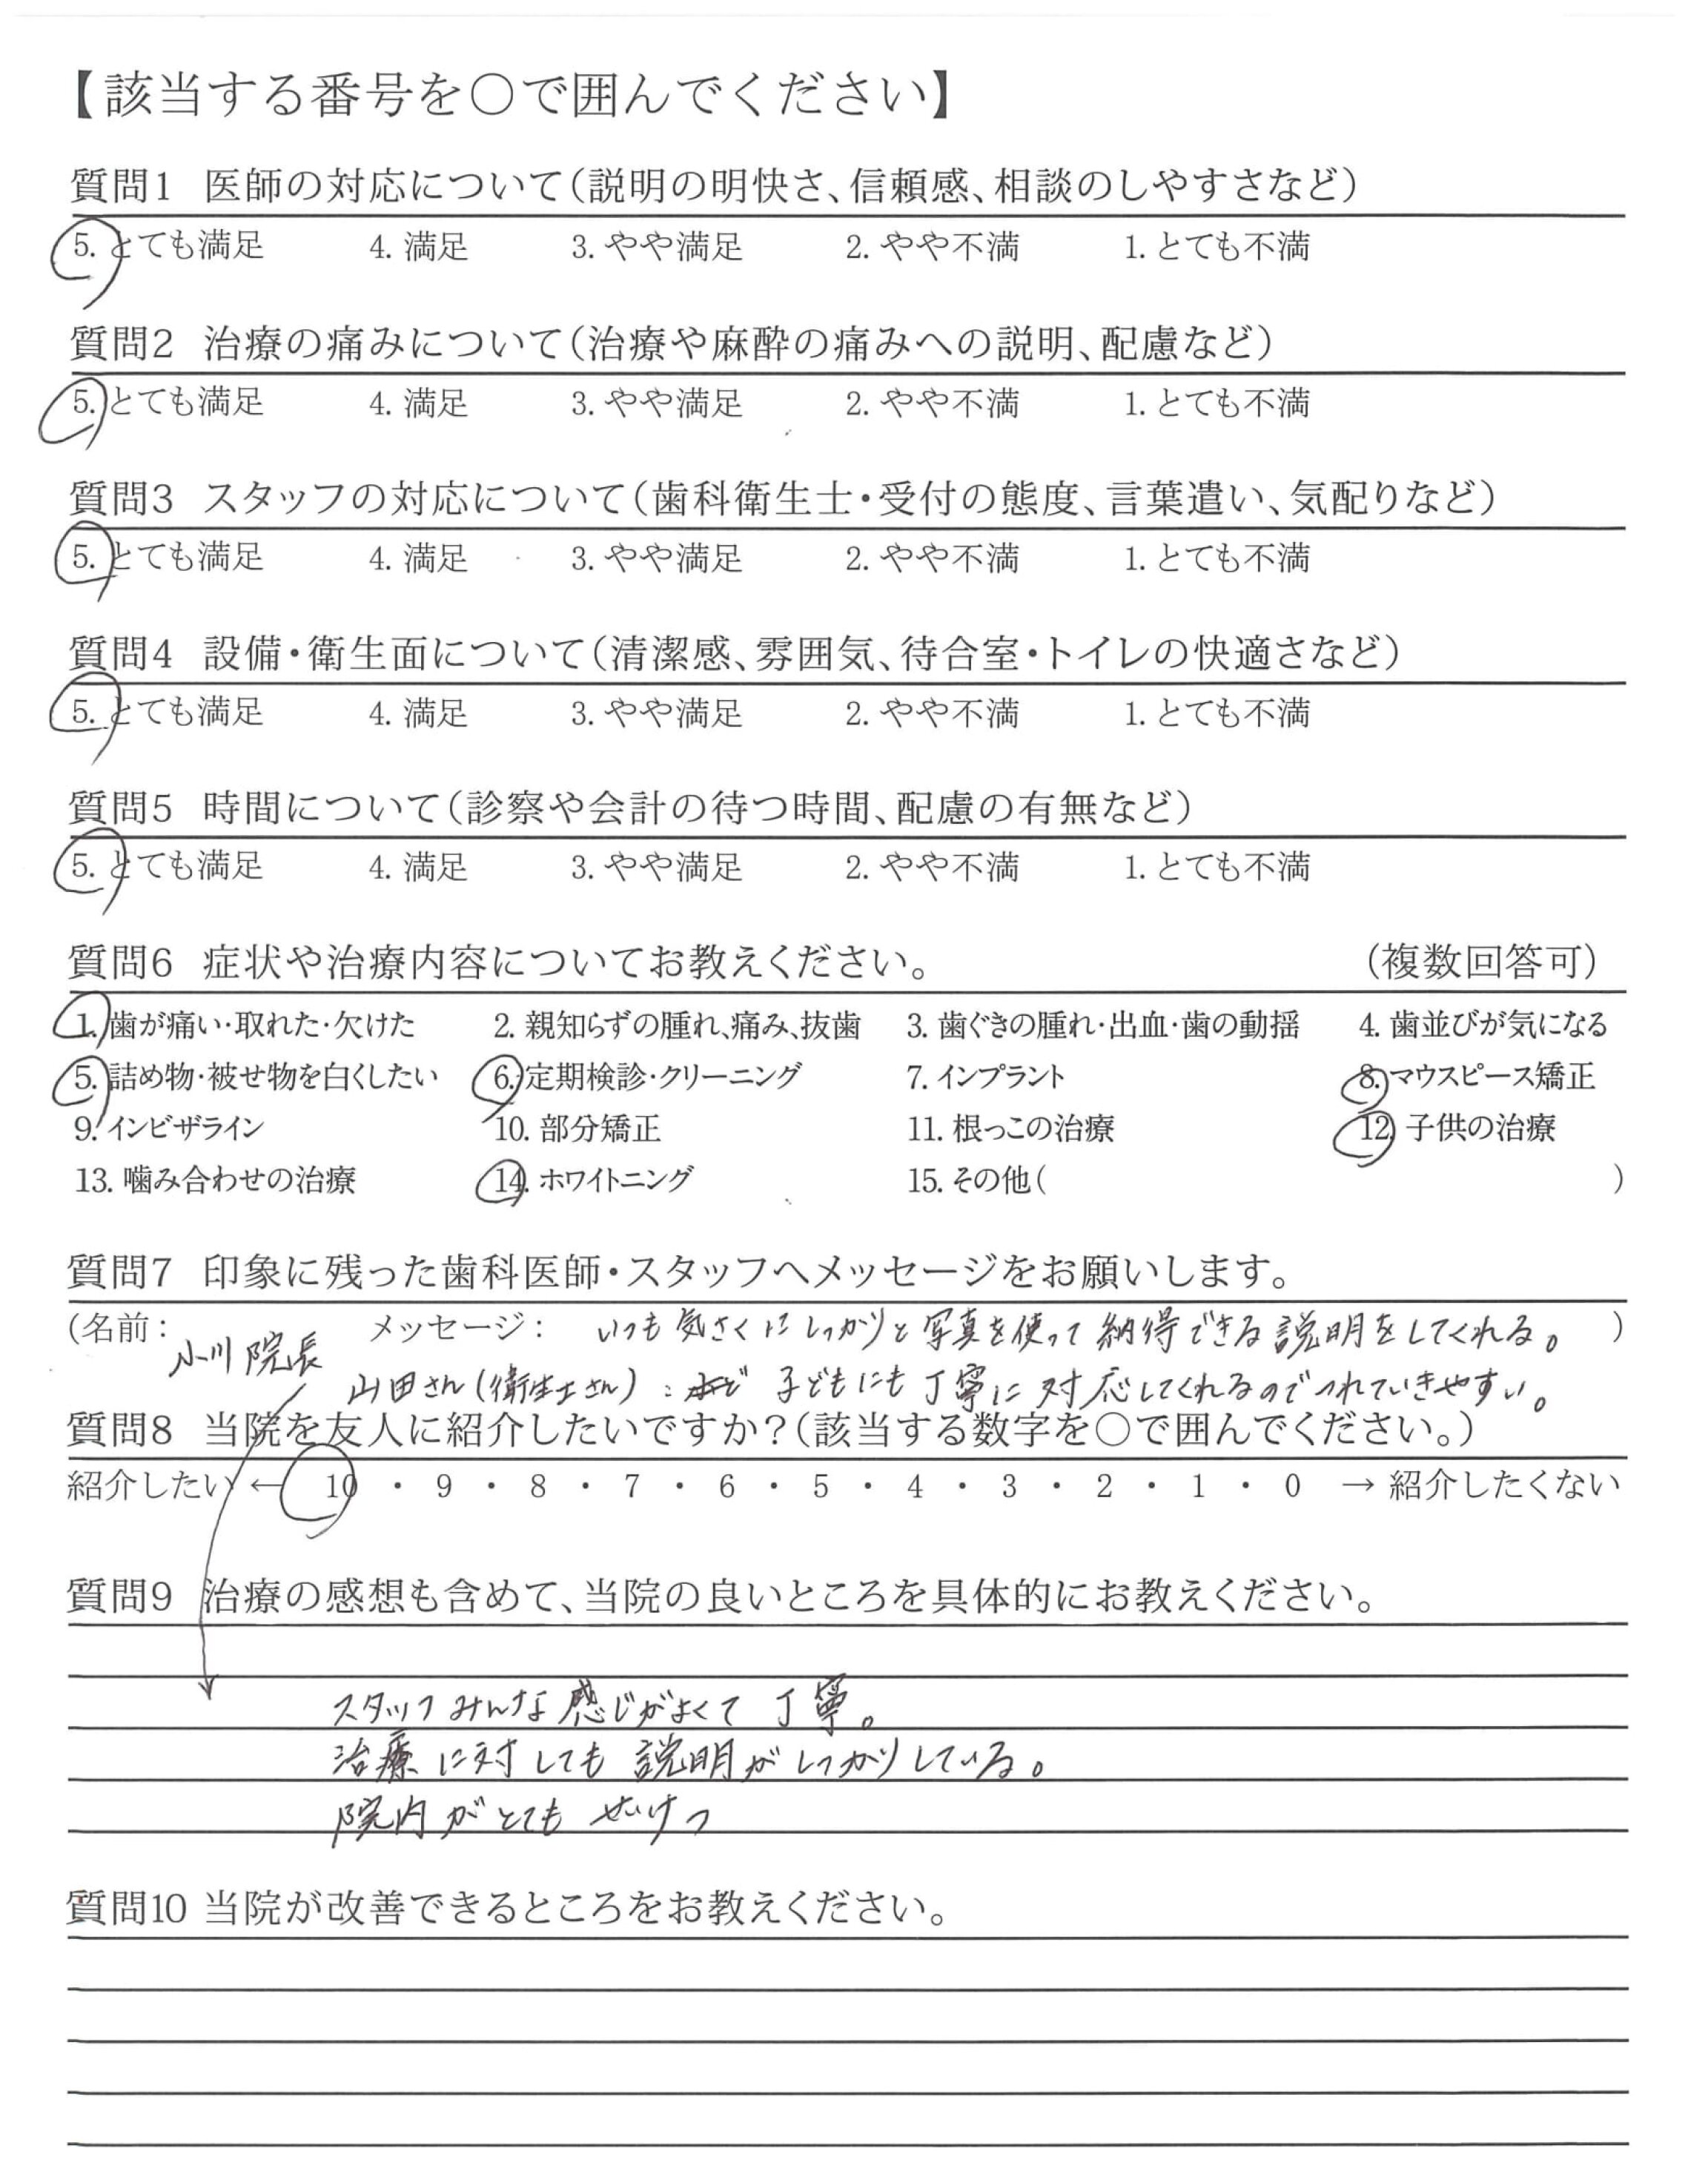 【該当する番号を○で囲んでください】
質問1 医師の対応について（説明の明快さ、信頼感、相談のしやすさなど）
5. とても満足 4. 満足 3. やや満足 2. やや不満 1. とても不満
質問2 治療の痛みについて（治療や麻酔の痛みへの説明、配慮など）
5. とても満足 4. 満足 3. やや満足 2. やや不満 1. とても不満
質問3 スタッフの対応について（歯科衛生士・受付の態度、言葉遣い、気配りなど）
5. とても満足 4. 満足 3. やや満足 2. やや不満 1. とても不満
質問4 設備・衛生面について（清潔感、雰囲気、待合室・トイレの快適さなど）
5. とても満足 4. 満足 3. やや満足 2. やや不満 1. とても不満
質問5 時間について（診察や会計の待つ時間、配慮の有無など）
5. とても満足 4. 満足 3. やや満足 2. やや不満 1. とても不満
質問6 症状や治療内容についてお教えください。 （複数回答可）
1. 歯が痛い・取れた・欠けた 2. 親知らずの腫れ、痛み、抜歯 3. 歯ぐきの腫れ・出血・歯の動揺 4. 歯並びが気になる
5. 詰め物・被せ物を白くしたい 6. 定期検診・クリーニング 7. インプラント 8. マウスピース矯正
9. インビザライン 10. 部分矯正 11. 根っこの治療 12. 子供の治療
13. 噛み合わせの治療 14. ホワイトニング 15. その他（ ）
質問7 印象に残った歯科医師・スタッフへメッセージをお願いします。
（名前： メッセージ： いつも気さくにしっかりと写真を使って納得できる説明をしてくれる。 ）
小川院長
山田さん（衛生士さん）： 子どもにも丁寧に対応してくれるのでつれていきやすい。
質問8 当院を友人に紹介したいですか？（該当する数字を○で囲んでください。）
紹介したい ← 10 ・ 9 ・ 8 ・ 7 ・ 6 ・ 5 ・ 4 ・ 3 ・ 2 ・ 1 ・ 0 → 紹介したくない
質問9 治療の感想も含めて、当院の良いところを具体的にお教えください。
スタッフみんな感じがよくて丁寧。
治療に対しても説明がしっかりしている。
院内がとてもせいけつ
質問10 当院が改善できるところをお教えください。